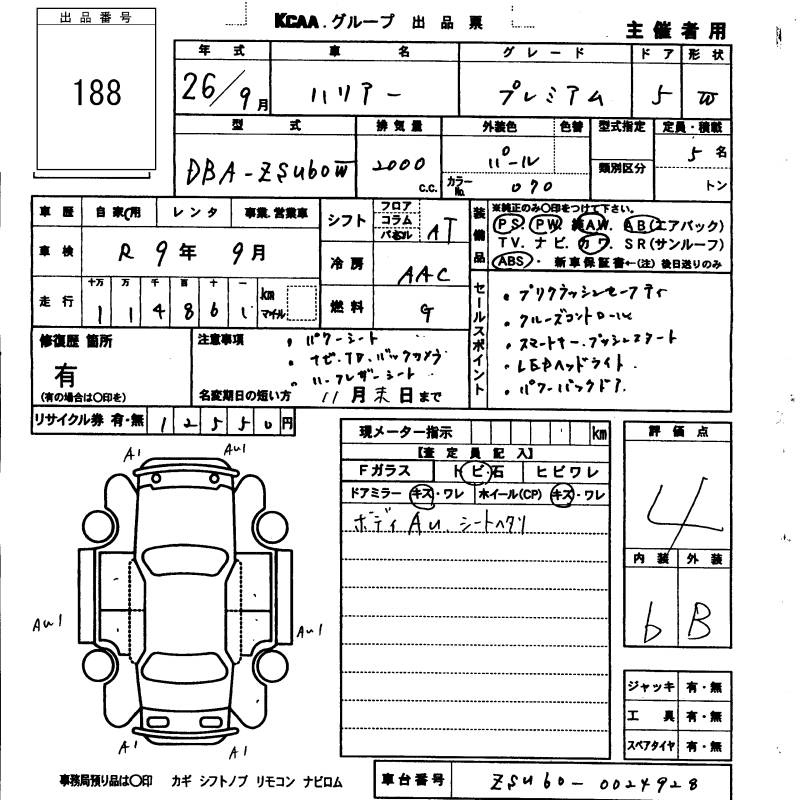 出品番号
188
KCAA.グループ 出品票
主催者用
年式 車名 グレード ドア 形状
26/9月 ハリアー プレミアム 5 W
型式 排気量 外装色 色替 型式指定 定員・積載
DBA-ZSU60W 2000 c.c. パール
カラーNo. 070
類別区分
5名
トン
車歴 自家用 レンタ 事業.営業車
車検 R 9年 9月
走行 十万 万 千 百 十 一
114861 km マイル
シフト フロア コラム パネル AT
冷房 AAC
燃料 G
装備品
※純正のみ〇印をつけて下さい。
PS. PW. 純AW. AB(エアバック)
TV. ナビ. カワ. SR(サンルーフ)
ABS. 新車保証書←(注)後日送りのみ
セールスポイント
・プリクラッシュセーフティ
・クルーズコントロール
・スマートキー.プッシュスタート
・LEDヘッドライト.
・パワーバックドア.
修復歴 箇所
有
(有の場合は〇印を)
注意事項
・パワーシート
・ナビ.TV.バックカメラ
・ハーフレザーシート
名変期日の短い方 11月末日まで
リサイクル券 有・無 12550円
現メーター指示 km
【査定員記入】
Fガラス トビ石 ヒビワレ
ドアミラー キズ・ワレ ホイール(CP) キズ・ワレ
ボディAU.シートヘタリ
評価点
4
内装 外装
b B
A1 AU1
AU1 AU1
A1 A1
ジャッキ 有・無
工具 有・無
スペアタイヤ 有・無
事務局預り品は〇印 カギ シフトノブ リモコン ナビロム
車台番号 ZSU60-0024928